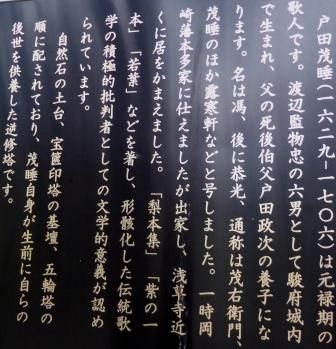 戸田茂睡(一六二九-一七〇六)は元禄期の
歌人です。渡辺監物忠の六男として駿府城内
で生まれ、父の死後伯父戸田政次の養子にな
ります。名は馮、後に恭光、通称は茂右衛門、
茂睡のほか露寒軒などと号しました。一時岡
崎藩本多家に仕えましたが出家し、浅草寺近
くに居をかまえました。「梨本集」「紫の一
本」「若葉」などを著し、形骸化した伝統歌
学の積極的批判者としての文学的意義が認め
られています。
自然石の土台、宝篋印塔の基壇、五輪塔の
順に配されており、茂睡自身が生前に自らの
後世を供養した逆修塔です。